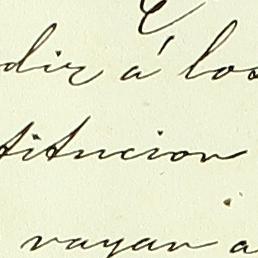 dir á los
titucion
vayan a